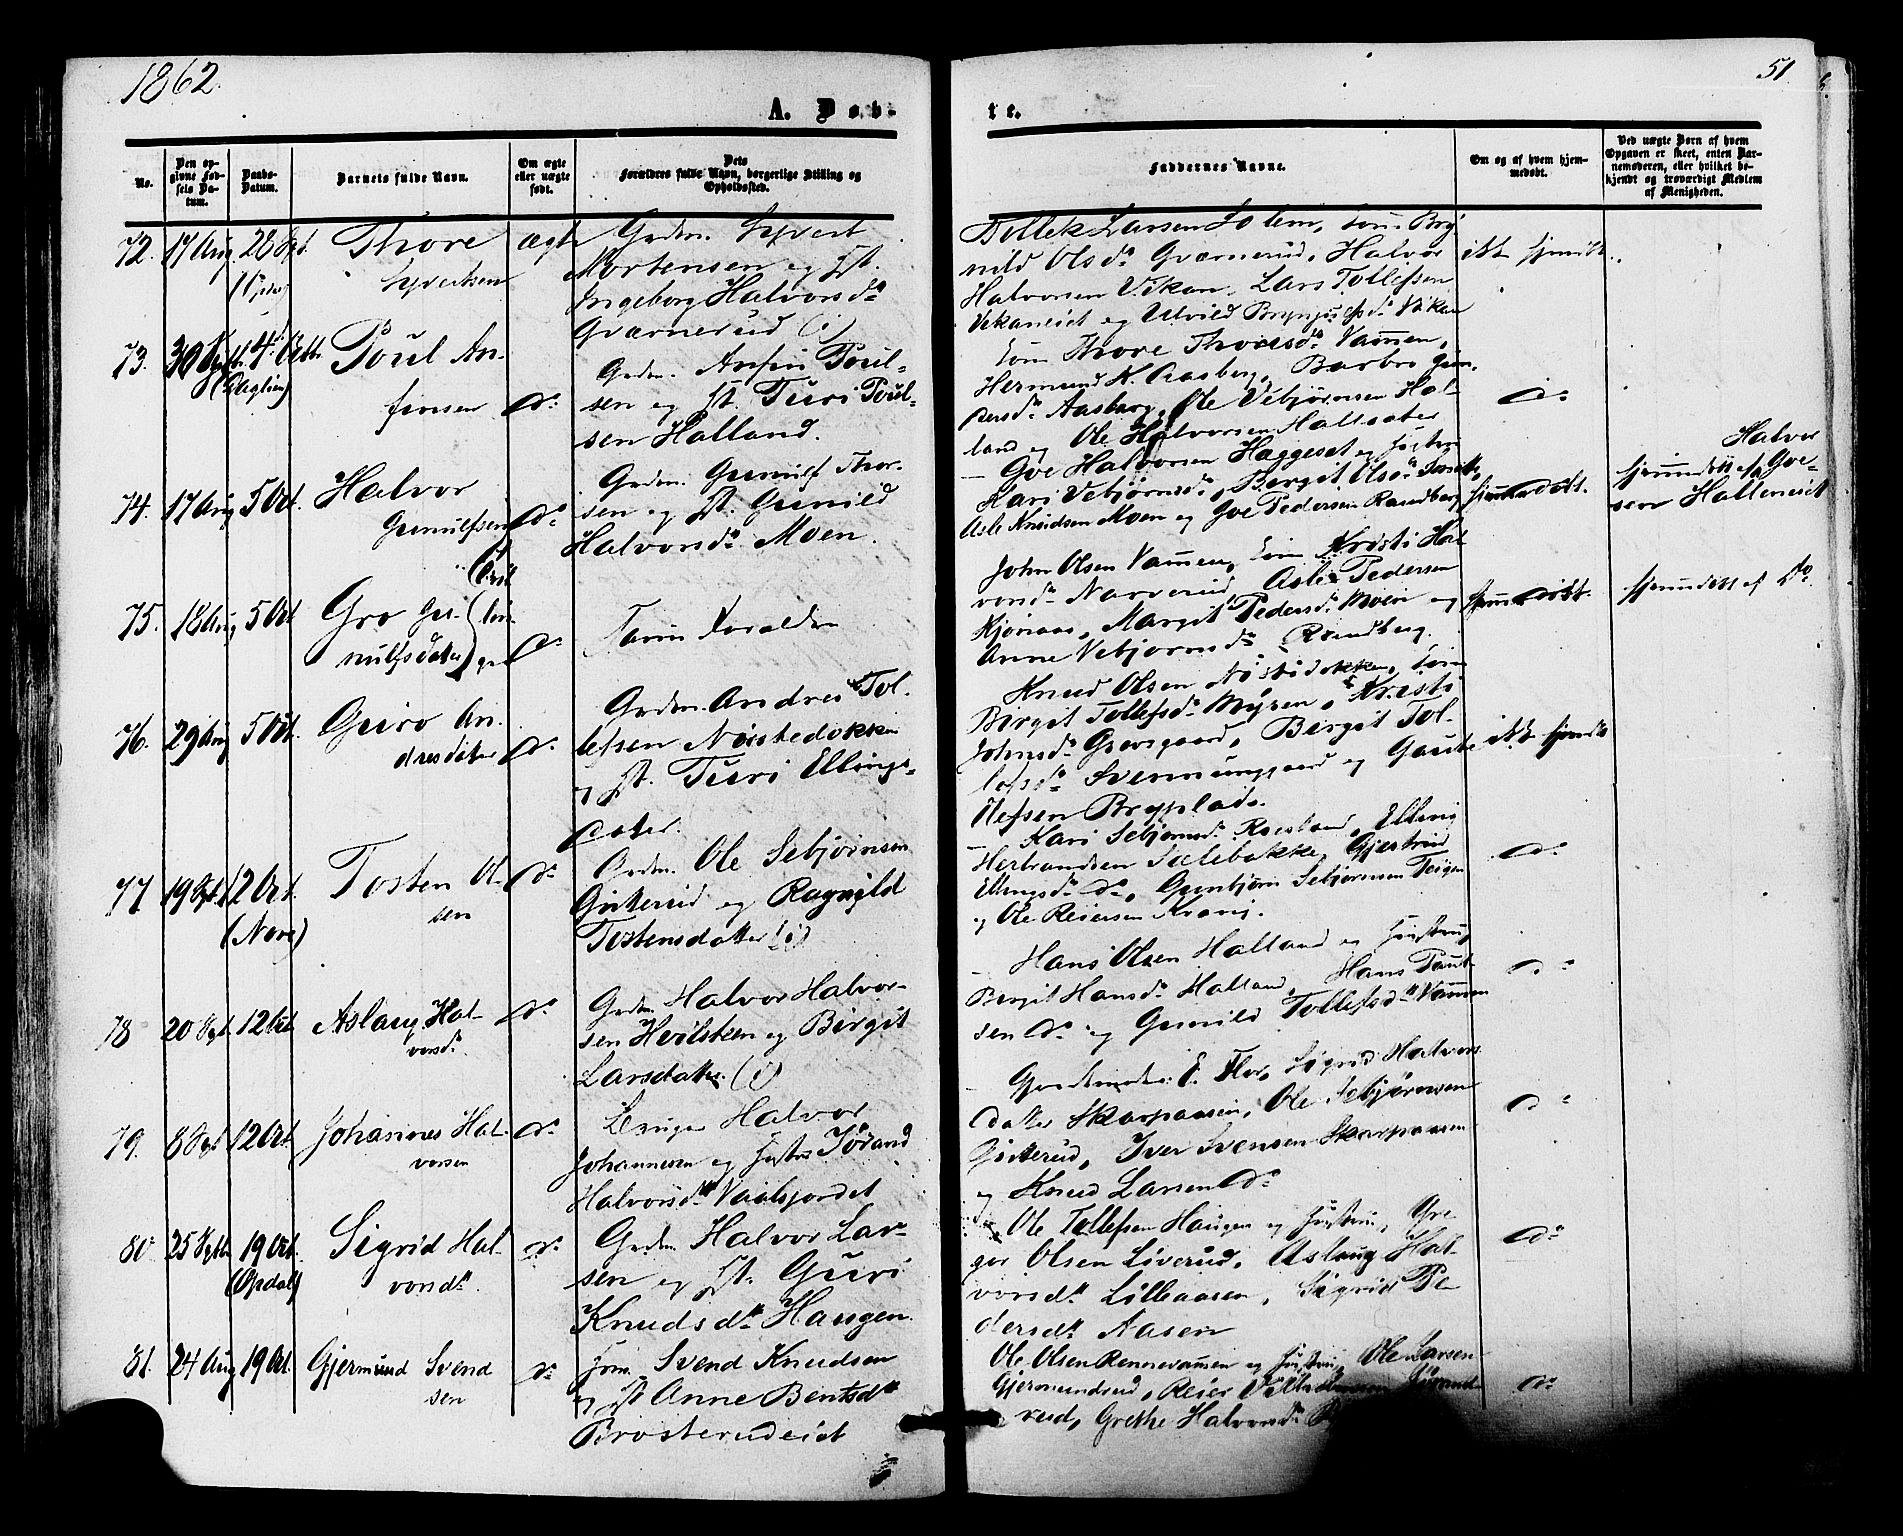 1862.
51
A. Døb-
te.
No.
Den op-
givne Fød-
sels Da-
tum.
Daabs-
Datum.
Barnets fulde Navn.
Om ægte
eller uægte
født.
Dets
Forældres fulde Navn, borgerlige Stilling og
Opholdssted.
Faddernes Navne.
Om og af hvem hjem-
medøbt.
Ved uægte Børn af hvem
Opgaven er skeet, enten Bar-
nemoderen, eller hvilket be-
kjendt og troværdigt Medlem
af Menigheden.
72. 17 Aug 28 Spt. Thore
Syvertsen
ægte
Gaardm. Syvert
Mortensen og Hst.
Ingeborg Halvorsdr
Gværnerud (i)
Tollek Larsen Solem, Bry
nild Olsdr Gværnerud, Halvor
Halvorsen Vikan, Lars Tollefsen
Vikaneiet og Utvild Brynjulfsdr Vikan
ikke hjemdbt.
73. 30 Sptb. 4 Octb. Poul An-
finsen
do
Gaardm. Anfin Poul-
sen og Hst. Turi Poul-
sen Halland.
Thore Thoresdr Vamen,
Hermund K. Aasberg, Barbro Gun-
Aasberg, Ole Vebjørnsen Hal-
land og Ole Halvorsen Hallsater
do
74. 17 Aug 5 Oct. Halvor
Gunulfsen
do
Gaardm. Gunulf Thor-
sen og Hst. Gunild
Halvorsdr Moen.
Goe Halvorsen Haggeset og Hustru
Kari Vebjørnsdr, Bergit Olsdr
Asle Knudsen Moen og Goe Pedersen Rambberg
hjemmedøbt.
hjemdbt af Halvor Goe-
sen Halleneiet
75. 18 Aug 5 Oct Gro Gu-
nulfsdater
do
Samme Forældre
John Olsen Vamen, Kristi Hal
vorsdr Narverud, Asle Pedersen
Kjønaas, Margit Pedersdr Moen og
Anne Vebjørnsdr Ramberg.
hjemmedøbt.
hjemmedøbt af do.
76. 29 Aug 5 Oct. Guro An-
dresdater
do
Gaardm. Andres Tol-
lefsen Nørstedokken
og Hst. Turi Ellings-
dater.
Knud Olsen Nørstedokken,
Birgit Tollefsdr Myren, Kristi
Johnsdr Grevsgaard, Birgit Tol-
lefsdr Svermunggaard og Gaute
Olefsen Bryplads.
ikke hjemdbt
77. 19 Spt. 12 Oct. Tosten Ol-
sen
(Nore)
do
Gaardm. Ole Sebjørnsen
Gisterud og Ragnild
Tostensdatter (i)
Kari Sebjørnsdr Raesland, Elling
Herbrandsen Sælebakke, Gjertrud
Ellingsdr do, Gunbjørn Sebjørnsen Teigen
og Ole Reiersen Kravi.
do
78 20 Spt. 12 Oct Aslaug Hal-
vorsdr
do
Gaardm. Halvor Halvor-
sen Hvilsken og Birgit
Larsdatter (i)
Hans Olsen Halland og Hustru
Bergit Hansdr Halland, Hans Paul-
sen do og Gunild Tollefsdr Vamen
do
79. 8 Spt 12 Oct Johannes Hal-
vorsen
do
Halvor
Johannesen og Hustru Jørand
Halvorsdr Vaalsjordet
E. Flor, Sigrid Halvors
datter Skarpaasen, Ole Sebjørnsen
Gisterud, Iver Svensen Skarpaasen
og Knud Larsen do
do
80 25 Sptb 19 Oct. Sigrid Hal-
vorsdr.
(Opdal)
do
Gaardm Halvor Lar-
sen og Hst. Guri
Knudsdr Haugen.
Ole Tollefsen Haugen og Hustru, Gre
gor Olsen Liverud, Aslaug Hal-
vorsdr Lilleaasen, Sigrid Pe
dersdr Aasen
do
81. 24 Aug 19 Oct. Gjermund Svend
sen
do
Svend Knudsen
og Hst Anne Bentsdr
Brosterudeiet
Ole Olsen Rennevamen og Hustru, Ole Larsen
Gjermundsrud, Reier
rud, Grethe Halvorsdr
do